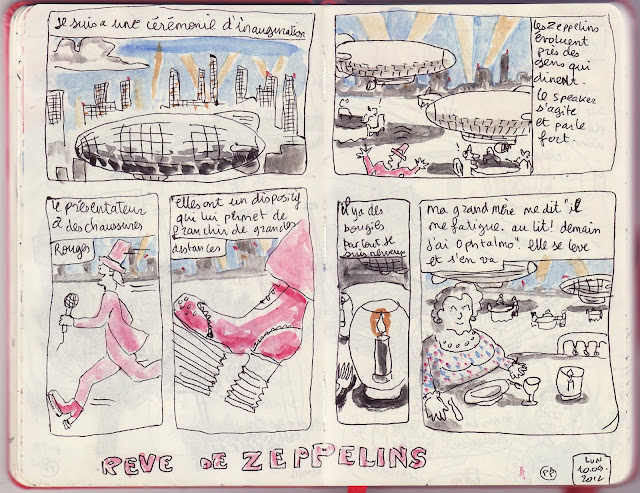 Je suis a une cérémonie d'inauguration
les Zeppelins
évoluent
près des
gens qui
dinent.
le speaker
s'agite
et parle
fort.
le présentateur
a des chaussures
Rouges
elles ont un dispositif
qui lui permet de
franchir de grandes
distances
il ya des
bougies
partout Je
suis nerveux
ma grand mère me dit "il
me fatigue. au lit! demain
j'ai Ophtalmo". elle se lève
et s'en va
REVE DE ZEPPELINS
PP
LUN
10.09.
2012